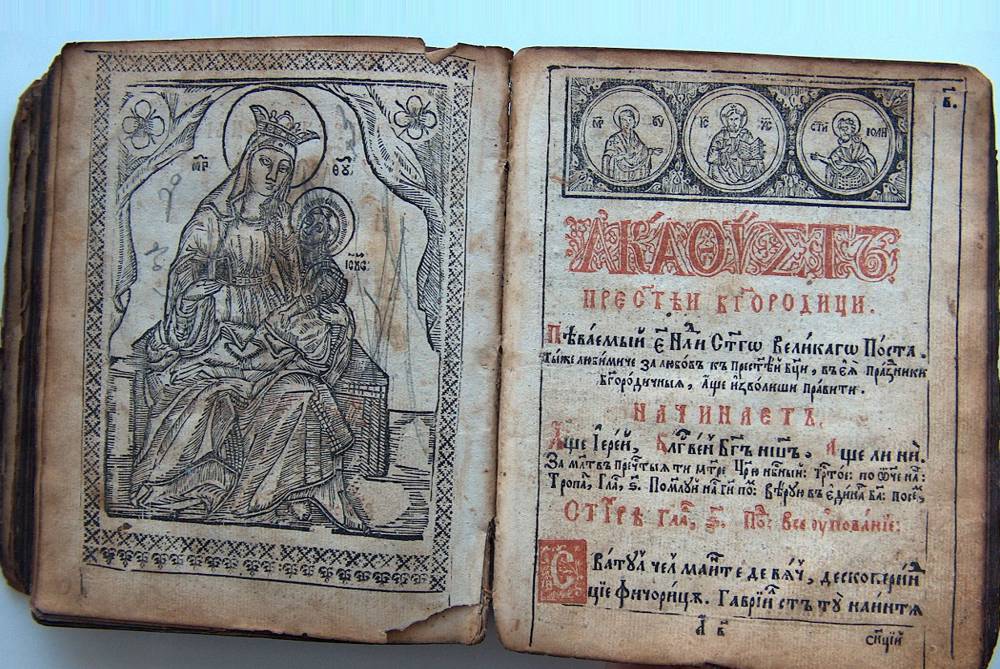 МР ѲУ
ІС ХС
МР ѲУ
ІС ХС
СТИ ІОАН
АКАѲѴСТЪ
ПРЕСТѢЙ БГОРОДИЦИ.
Пѣва́емый Є҃ Нл҃и Ст҃гѡ Вели́кагѡ По́ста.
Ты́же любимиче за любовъ къ прест҃ѣй бц҃и, въ єѧ̀ пра́здники
бг҃ородичныѧ, а҆́ще и҆зволиши пра́вити.
НАЧИНАЕТЪ.
А҆́ще Іере́й, Блг҃ве́нъ Бг҃ъ нш҃ъ, А҆ще ли нѝ.
За мл҃твъ преч҃тыѧ ти мт҃ре Цр҃ю нб҃ный: трт҃ое: по ѻч҃е на:
Тропа̀, Гла, ѕ҃. Помлуй на гн҃ по: Вѣрую въ єдинаг҃ Ба: посе,
СТІРѢ Гла, ѕ҃. По: Все оупование:
Сватул чел ма́йте де вѧч, дескоперинд
ціе фичорицѫ. Гавріил стъту̀ наинтѧ
А в҃